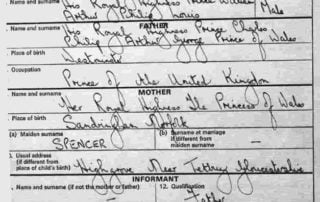 . Name and surname His Royal Highness Prince William Male
Arthur Philip Louis
FATHER
. Name and surname His Royal Highness Prince Charles
Philip Arthur George Prince of Wales
Place of birth
Westminster
. Occupation
Prince of the United Kingdom
MOTHER
. Name and surname
Her Royal Highness The Princess of Wales
Place of birth
Sandringham Norfolk
(a) Maiden surname (b) Surname at marriage
if different from
SPENCER maiden surname —
. Usual address
(if different from
place of child's birth) Highgrove Near Tetbury Gloucestershire
INFORMANT
. Name and surname (if not the mother or father) 12. Qualification
Father